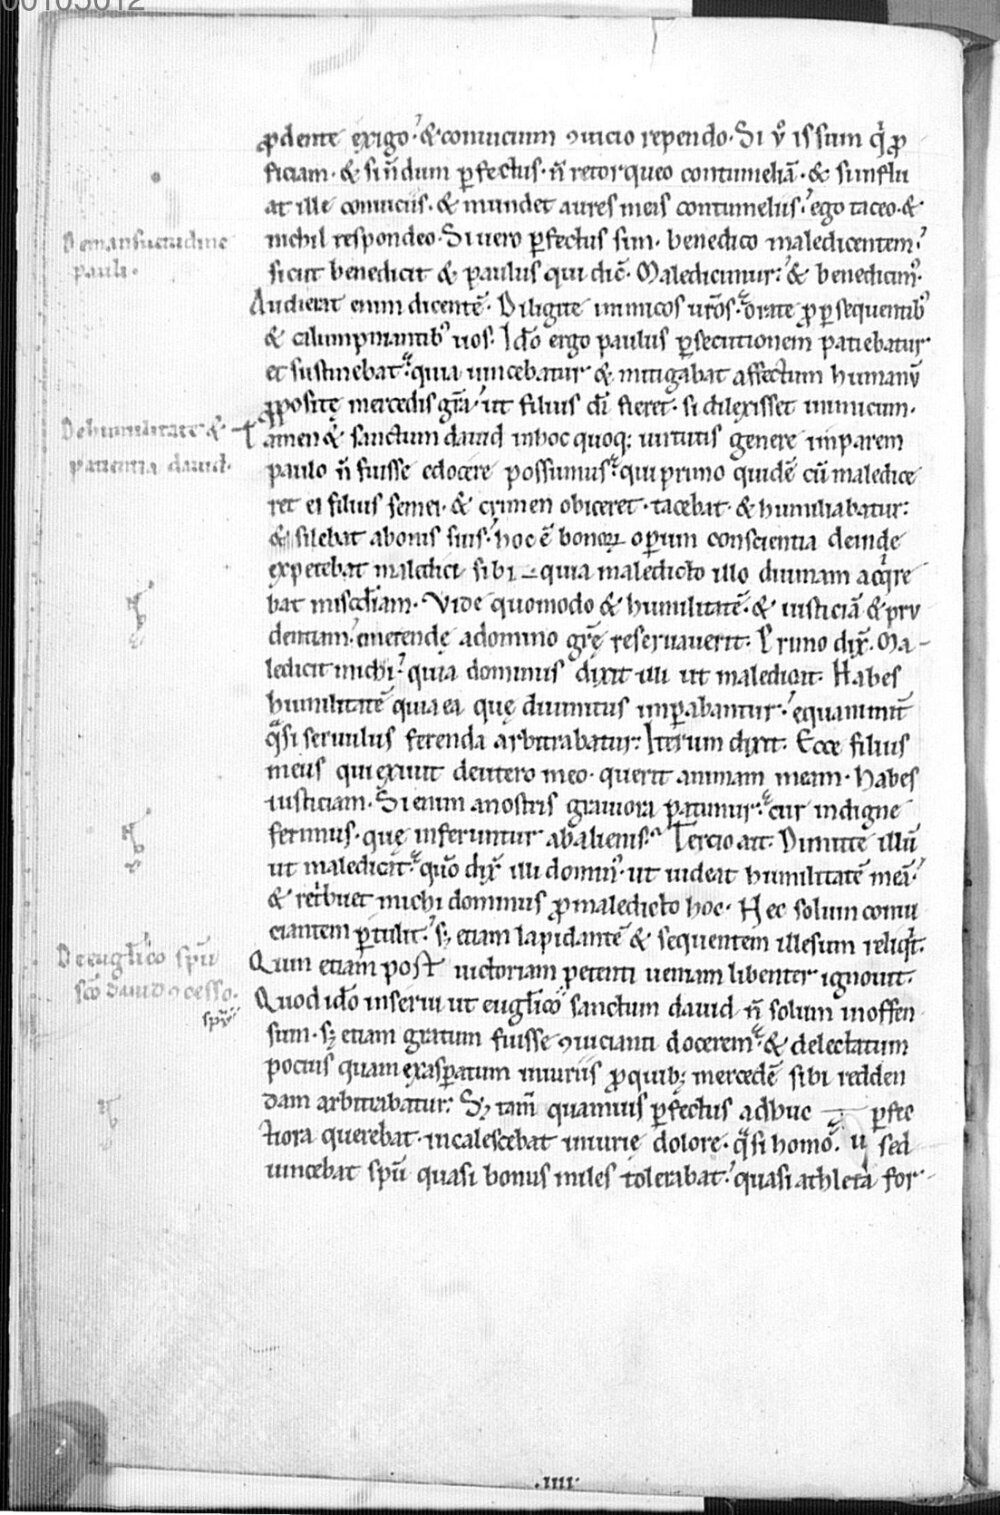 00103012
ꝓdente exigo · & conuicium ꝯuicio rependo · Si ů is sum qͥ ꝓ
ficiam · & si nōdum ꝑfectus · n̄ retorqueo contumeliā · & si influ
at ille conuiciis · & inundet aures meis contumeliis · ego taceo · &
nichil respondeo · Si uero ꝑfectus sim · benedico maledicentem ·
sicut benedicit & paulus qui dic̄ · Maledicimur · & benedicimꝰ ·
Audierat enim dicentē · Diligite inimicos ur̄os · orate ꝓ ꝑsequentibꝰ
& calumpniantibꝰ uos · Ido ergo paulus ꝑsecutionem patiebatur
et sustinebat · quia uincebatur & mitigabat affectum humanū
ꝓpositę mercedis gr̄a · ut filius di fieret · si dilexisset inimicum ·
Tamen & sanctum dauid in hoc quoq; uirtutis genere imparem
paulo n̄ fuisse edocere possumus · qui primo quidē cū maledice
ret ei filius semei · & crimen obiceret · tacebat · & humiliabatur ·
& silebat a bonis suis · hoc ē bonoꝝ operum conscientia deinde
expetebat maledici sibi quia maledicto illo diuinam acqͥre
bat mis̄diam · Vide quomodo & humilitatē · & iusticiā & pru
dentiam · emerendę a domino gr̄ę reseruauerit · Primo dix̄ · Ma-
ledicit michi · quia dominus dixit illi ut maledicat · Habes
humilitatē quia ea quę diuinitus imꝑabantur · equanimit̄
qͣsi seruulus ferenda arbitrabatur · Iterum dixit · Ecce filius
meus qui exiuit de utero meo · querit animam meam · Habes
iusticiam · Si enim a nostris grauiora patimur · cur indigne
ferimus · quę inferuntur ab alienis · Tercio ait · Dimitte illū
ut maledicat · qūo dix̄ illi dominꝰ · ut uideat humilitatē meā ·
& retͥbuet michi dominus ꝓ maledicto hoc · Nec solum conui
ciantem ꝑtulit · sꝫ etiam lapidantē & sequentem illesum reliqͥt ·
Quin etiam post uictoriam petenti ueniam libenter ignouit ·
Quod ido inserui ut eug̅lico sanctum dauid n̄ solum inoffen
sum · sꝫ etiam gratum fuisse ꝯuicianti docerem · & delectatum
pocius quam exasꝑatum iniuriis ꝓ quibꝫ mercedē sibi redden
dam arbitrabatur · Sꝫ tam̄ quamuis ꝑfectus adhuc ꝑfec
tiora querebat · incalescebat iniurię dolore · qͣsi homo · sed
uincebat spū quasi bonus miles tolerabat · quasi athleta for
De mansuetudine
pauli ·
De humilitate &
patientia dauid ·
De eug̅lico spū
scō dauid ꝯcesso ·
· IIII ·